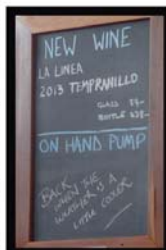 NEW WINE
LA LINEA
2013 TEMPRANILLO
GLASS
BOTTLE
ON HAND PUMP
BACK
WHEN THE
WEATHER IS A
LITTLE COOLER